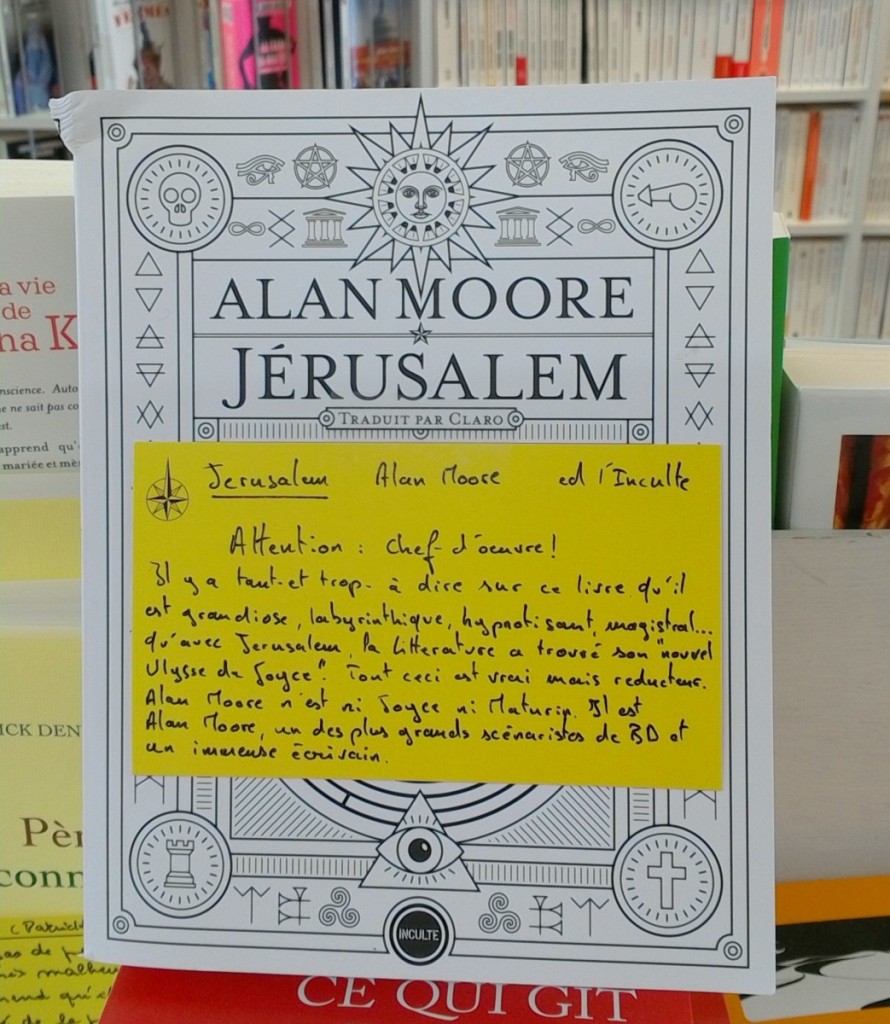 ALAN MOORE
JÉRUSALEM
TRADUIT PAR CLARO
Jerusalem Alan Moore ed l'Inculte
Attention : chef-d'oeuvre !
Il y a tant-et trop- à dire sur ce livre qu'il
est grandiose, labyrinthique, hypnotisant, magistral...
qu'avec Jerusalem, la litterature a trouvé son "nouvel
Ulysse de Joyce". Tout ceci est vrai mais reducteur.
Alan Moore n'est ni Joyce ni Maturin. Il est
Alan Moore, un des plus grands scénaristes de BD et
un immense écrivain.
INCULTE
CE QUI GIT
a vie
de
na K
nscience. Auto
e ne sait pas co
est.
apprend qu'
mariée et mè
ICK DEN
Pèr
conn